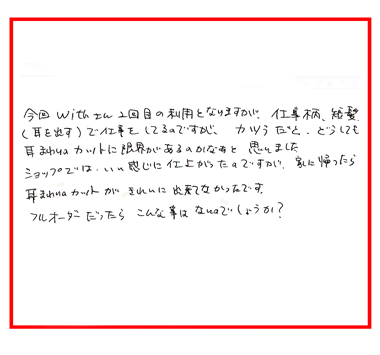 今回 withさん 2回目の利用となりますが、仕事柄、短髪
(耳を出す)で仕事をしてるのですが、カツラだと、どうしても
耳まわりのカットに限界があるのかなぁと 思いました
ショップでは、いい感じに仕上がったのですが、家に帰ったら
耳まわりのカットが きれいに出来てなかったです。
フルオーダーだったら こんな事は ないのでしょうか?